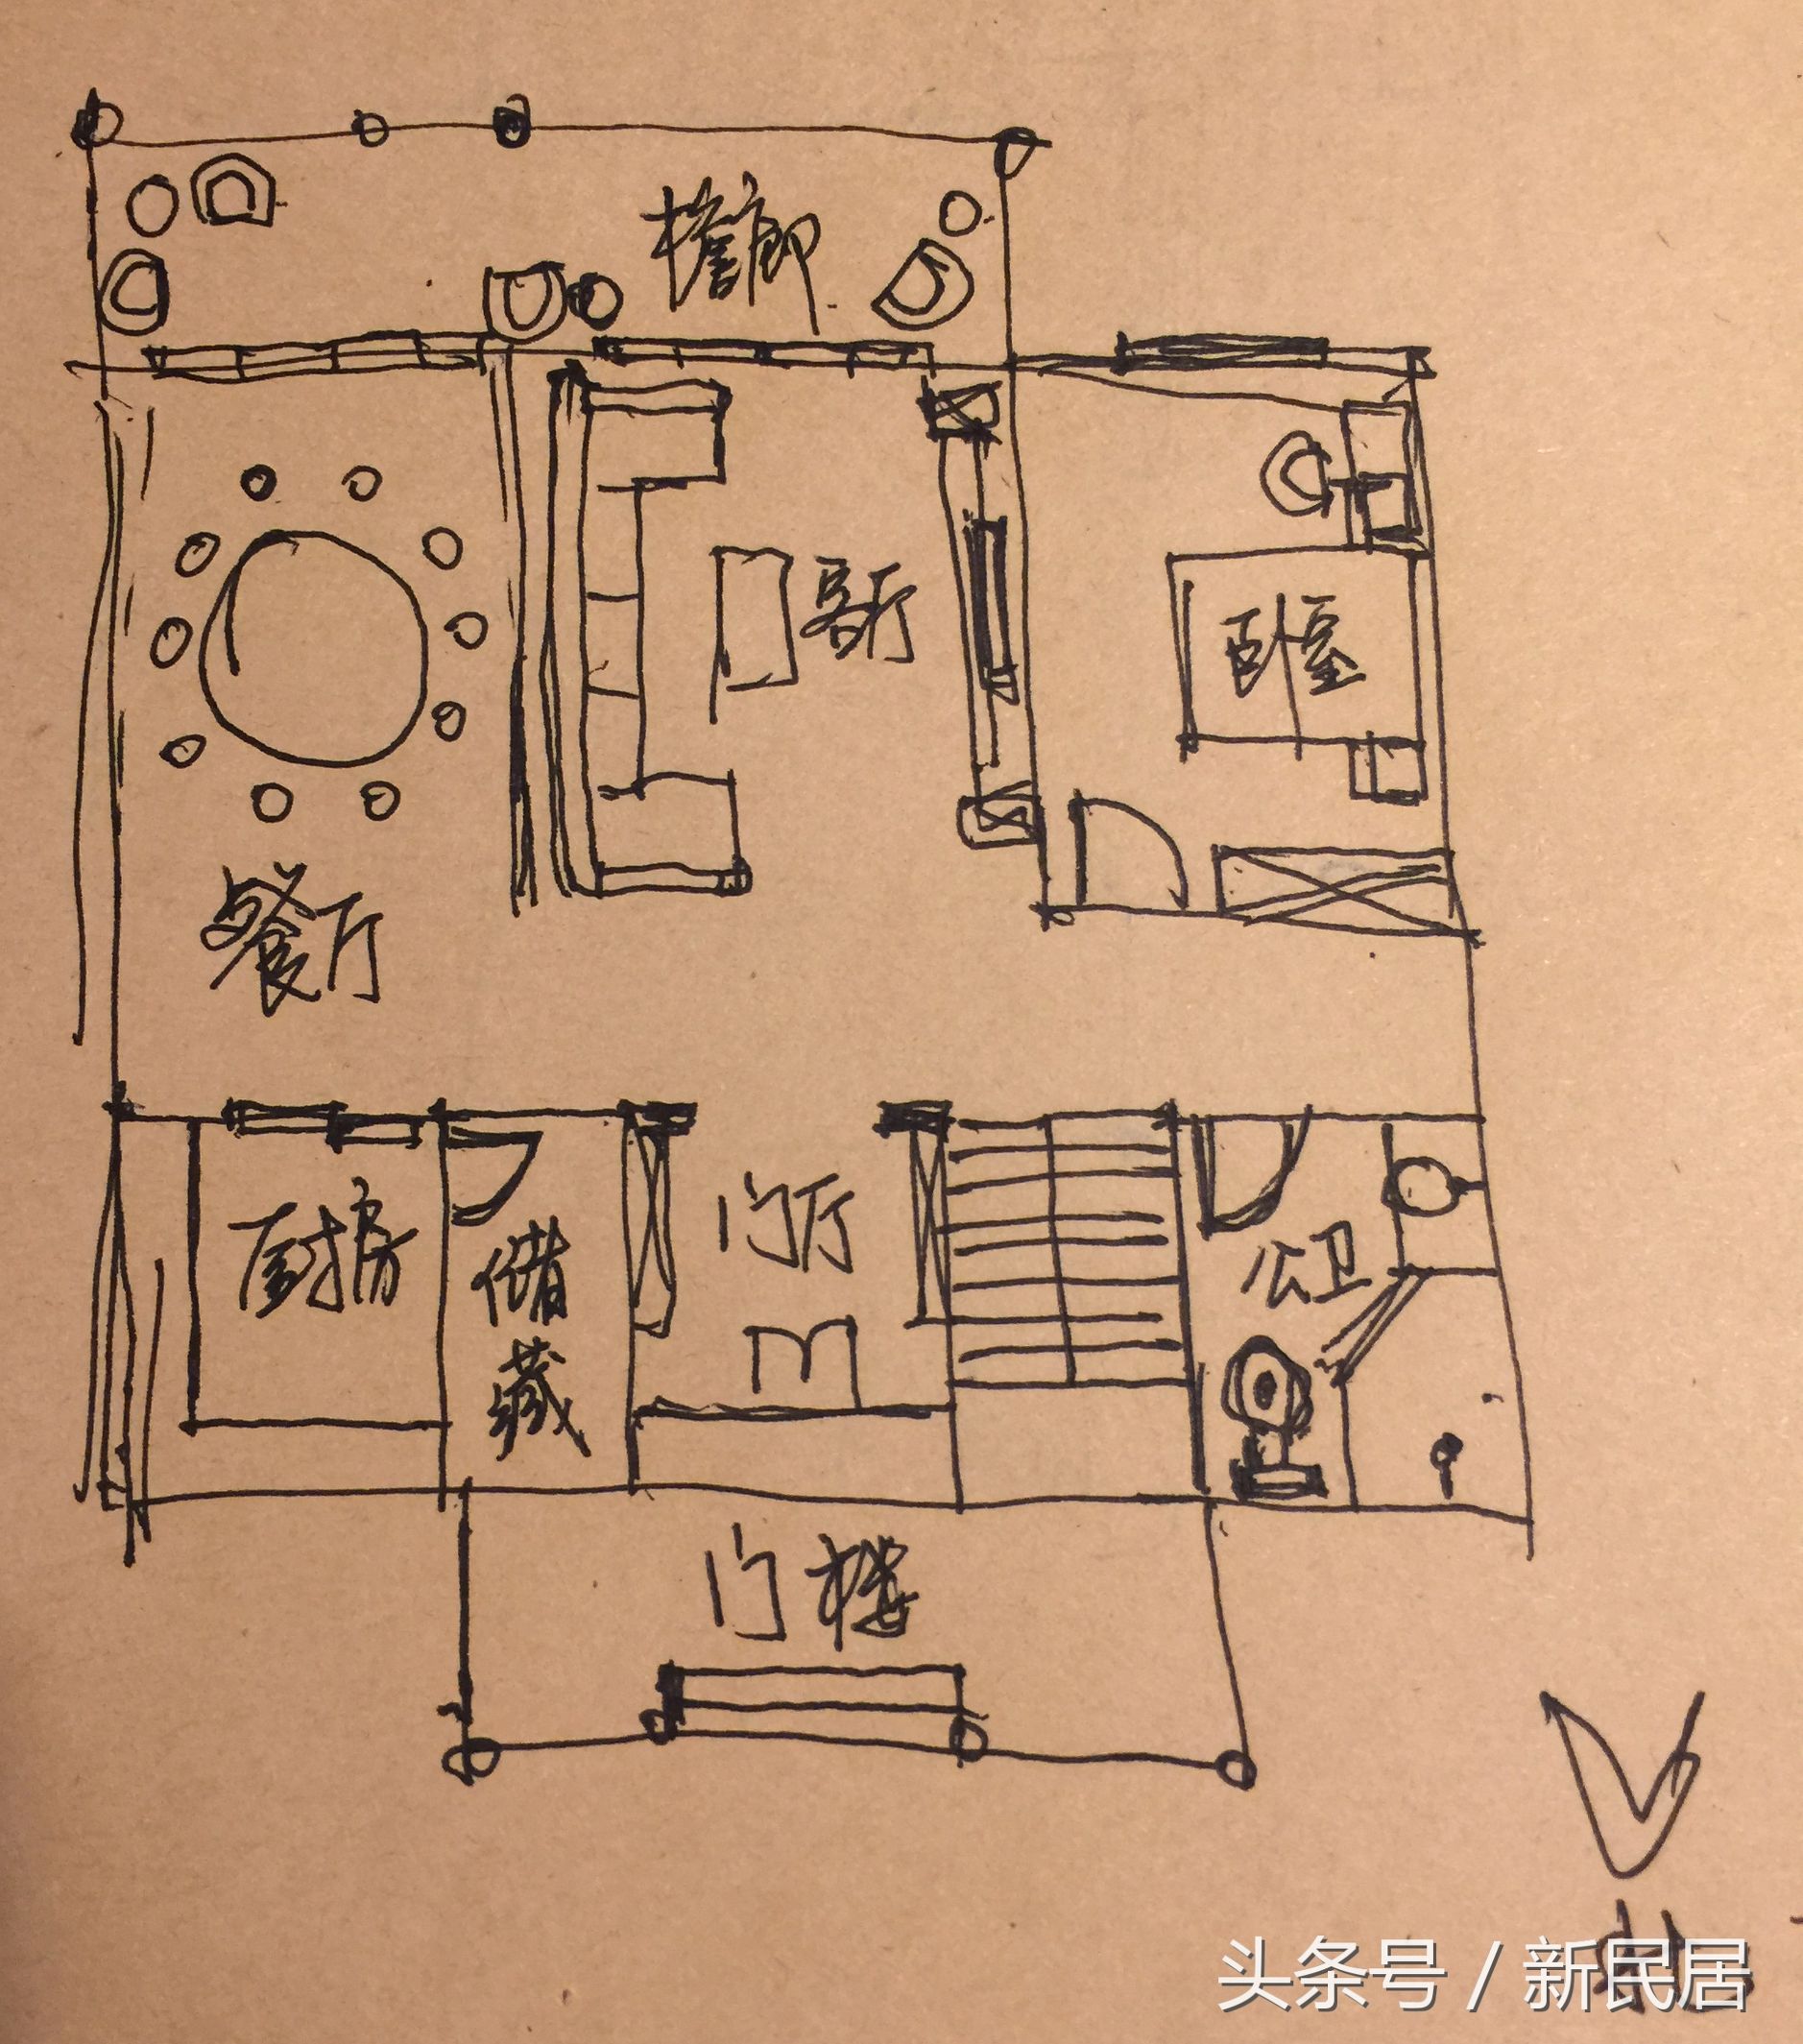 檐廊
客厅
卧室
餐厅
厨房
储藏
门厅
公卫
门楼
北
头条号 / 新民居